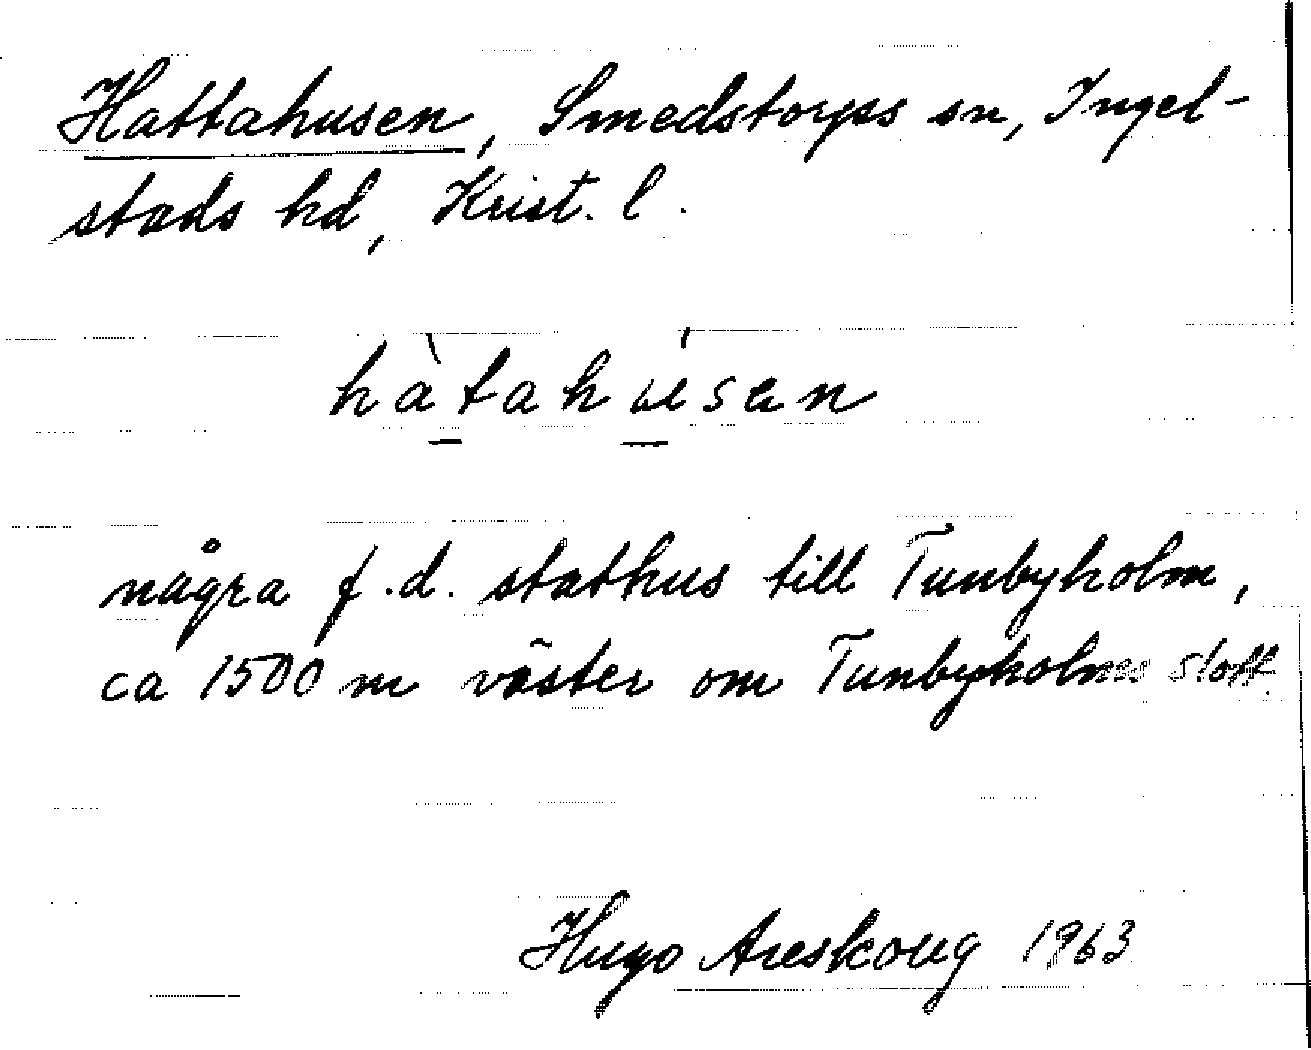 Hattahusen, Smedstorps sn, Ingel-
stads hd, Krist. l.
hàtahúsæn
några f.d. stathus till Tunbyholm,
ca 1500 m väster om Tunbyholms slott.
Hugo Areskoug 1963